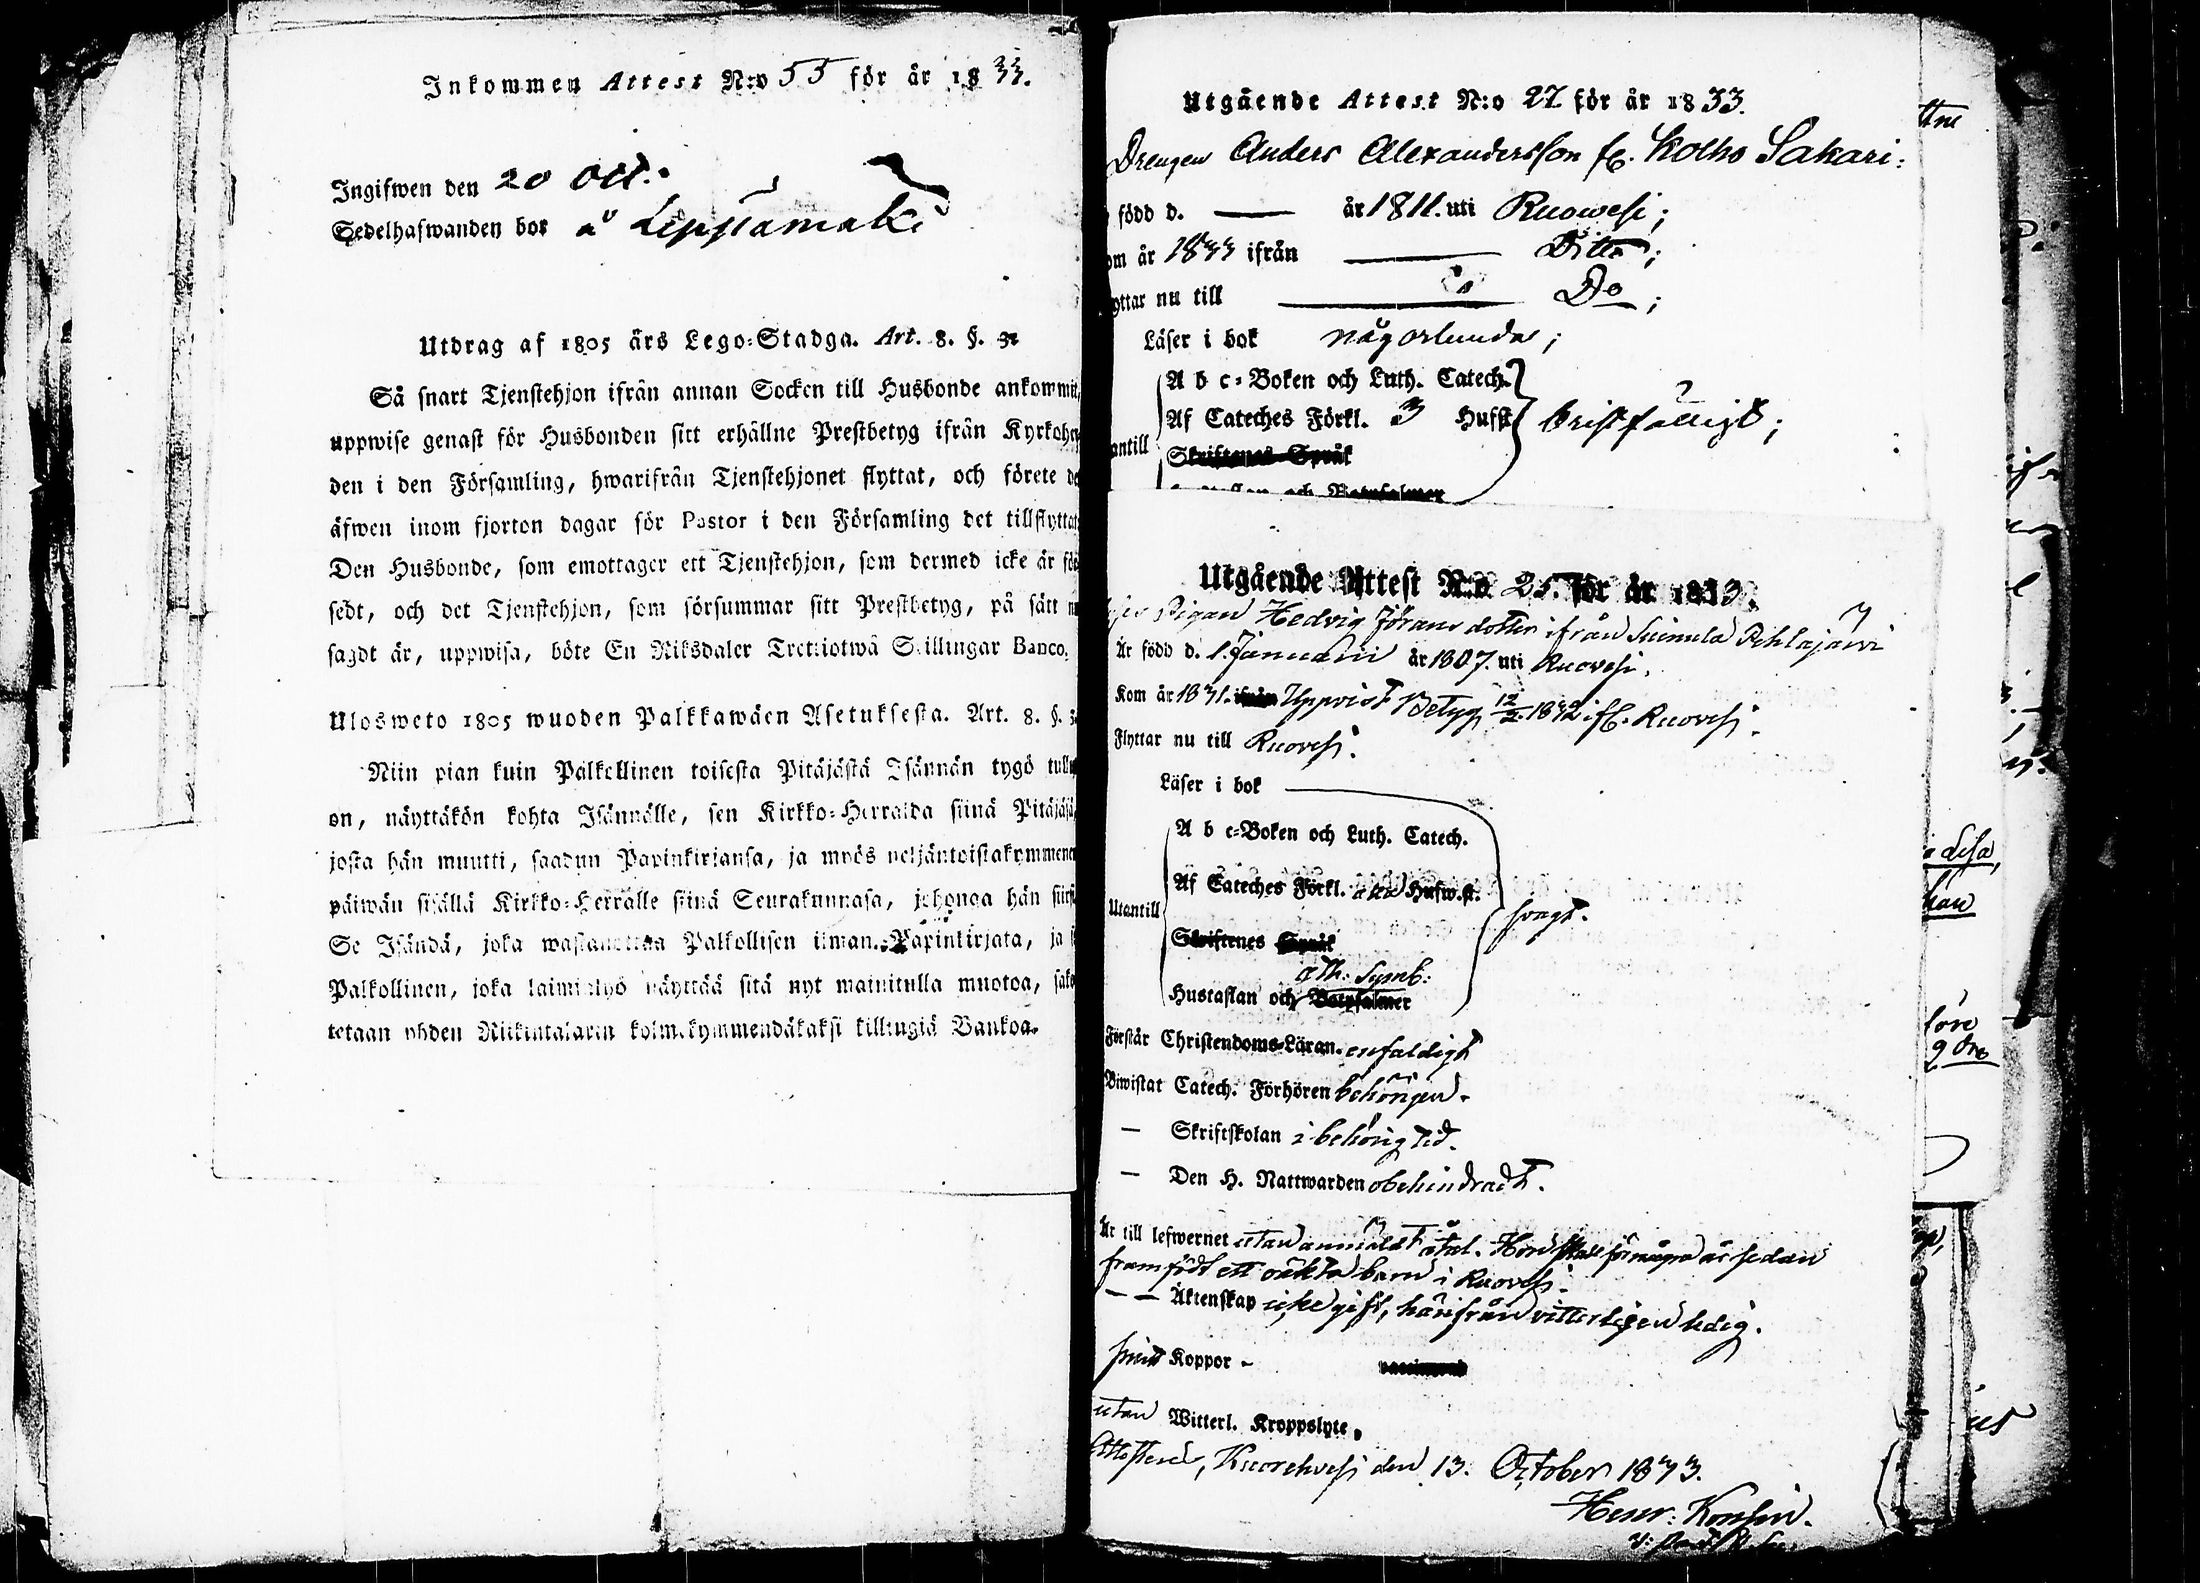 Inkommen Attest N:o 55 för år 1833.
Ingifwen den 20 Oct.
Sedelhafwanden bor å Leppämäki
Utdrag af 1805 års Lego-Stadga. Art. 8. §. 3.
Så snart Tjenstehjon ifrån annan Socken till Husbonde ankommit,
uppwise genast för Husbonden sitt erhållne Prestbetyg ifrån Kyrkoher
den i den Församling, hwarifrån Tjenstehjonet flyttat, och förete de
äfwen inom fjorton dagar för Pastor i den Församling det tillflyttat
Den Husbonde, som emottager ett Tjenstehjon, som dermed icke är för
sedt, och det Tjenstehjon, som försummar sitt Prestbetyg, på sätt nu
sagdt är, uppwisa, böte En Riksdaler Trettiotwå Skillingar Banco.
Ulosweto 1805 wuoden Palkkawäen Asetuksesta. Art. 8. §. 3.
Niin pian kuin Palkollinen toisesta Pitäjästä Isännän tygö tullu
on, näyttäkön kohta Isännälle, sen Kirkko-Herralda siinä Pitäjäsä
josta hän muutti, saadun Papinkirjansa, ja myös neljäntoistakymmenen
päiwän sisällä Kirkko-Herralle siinä Seurakunnasa, johonga hän siirsi
Se Isändä, joka wastanottaa Palkollisen ilman Papinkirjata, ja se
Palkollinen, joka laimilyö näyttää sitä nyt mainitulla muotoa, sako
tetaan yhden Riikintalarin kolmekymmendäkaksi killingiä Bankoa.
Utgående Attest N:o 27 för år 1833.
Drengen Anders Alexandersson fr. Kolho Sakari:
född d. — år 1811. uti Ruowesi;
om år 1833 ifrån — Ditto;
yttar nu till — Do;
Läser i bok någorlunda;
A b c-Boken och Luth. Catech.
Af Cateches Förkl. 3 Hufst. bristfälligt;
antill
Skriftenes Språk
Utgående Attest N:o 25. för år 1833.
Pigan Hedvig Jörans dotter ifrån Suinula Pehlajärvi
Är född d. 1. Januarii år 1807. uti Ruovesi.
Kom år 1831. ifrån Uppvist Betyg 12/2. 1832 ifr. Ruovesi.
Flyttar nu till Ruovesi.
Läser i bok
A b c-Boken och Luth. Catech.
Af Cateches Förkl. Hufw.st.
Utantill svagt.
Skriftenes Språk
ath: Symb:
Hustaflan och Botpsalmer
Förstår Christendoms-Läran. enfaldigt
Biwistat Catech. Förhören behörigen.
— Skriftskolan i behörig tid.
— Den H. Nattwarden obehindradt.
Är till lefwernet utan anmäldt åtal. Hon skall för några år sedan
framfödt ett oäkta barn i Ruovesi.
— — Äktenskap icke gift, härifrån vitterligen ledig.
haft Koppor - vaccinerad
utan Witterl. Kroppslyte.
Attesterar, Kuorehvesi den 13. October 1833.
Henr: Konsin.
ttne
Lisa,